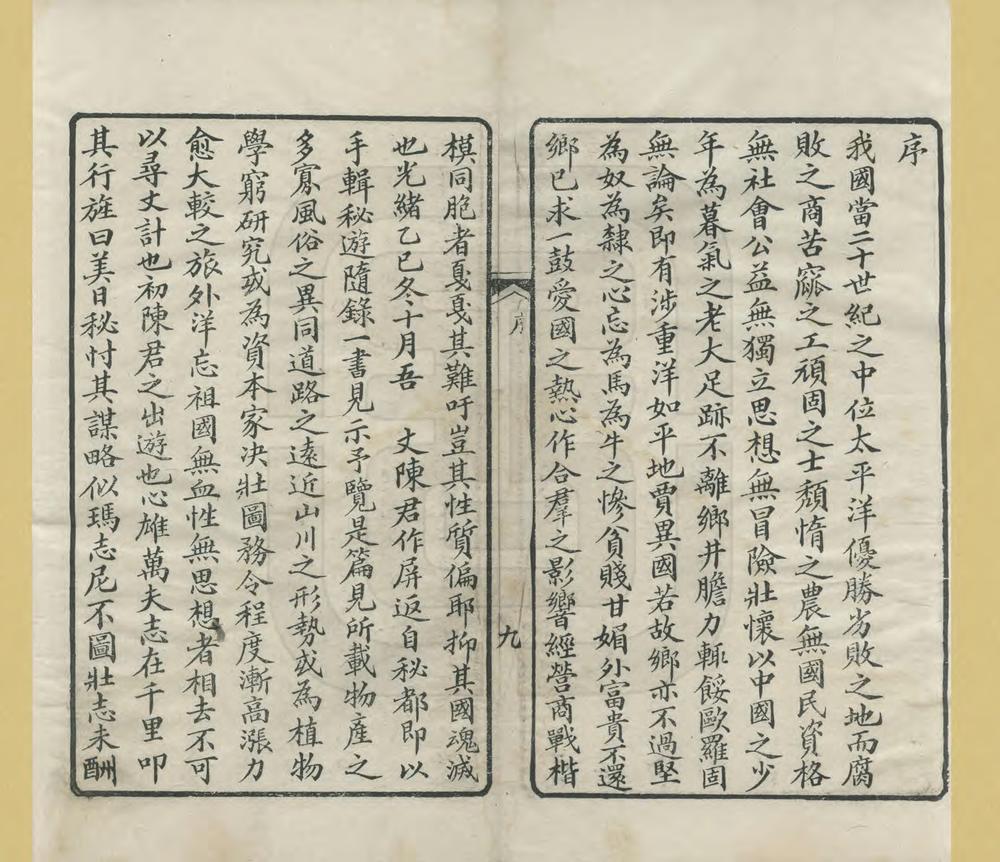 序
我國當二十世紀之中位太平洋優勝劣敗之地而腐
敗之商苦窳之工頑固之士頹惰之農無國民資格
無社會公益無獨立思想無冒險壯懷以中國之少
年為暮氣之老大足跡不離鄉井膽力輒餒歐羅固
無論矣即有涉重洋如平地賈異國若故鄉亦不過堅
為奴為隸之心忘為馬為牛之慘貧賤甘媚外富貴不還
鄉已求一鼓愛國之熱心作合羣之影響經營商戰楷
序
九
模同胞者戛戛其難吁豈其性質偏耶抑其國魂滅
也光緒乙巳冬十月吾 丈陳君作屏返自秘都即以
手輯秘遊隨錄一書見示予覽是篇見所載物產之
多寡風俗之異同道路之遠近山川之形勢或為植物
學窮研究或為資本家決壯圖務令程度漸高漲力
愈大較之旅外洋忘祖國無血性無思想者相去不可
以尋丈計也初陳君之出遊也心雄萬夫志在千里叩
其行旌曰美日秘忖其謀略似瑪志尼不圖壯志未酬